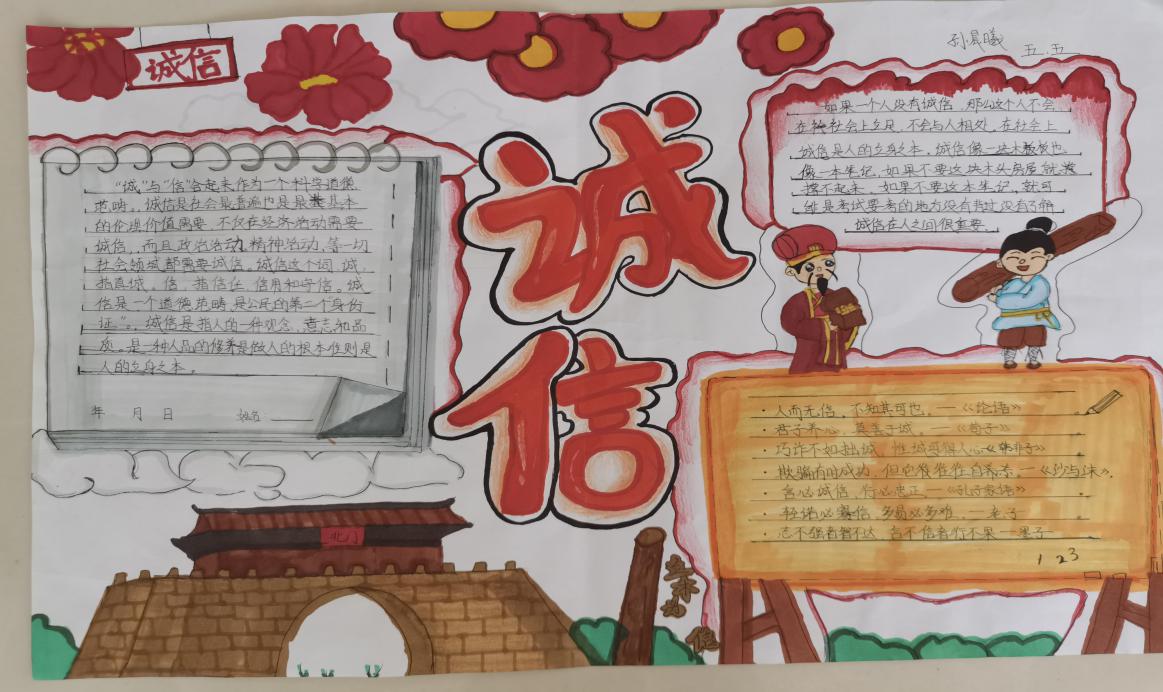 诚信
孙晨曦
五.五
诚
信
“诚”与“信”合起来作为一个科学道德
范畴，诚信是社会最普遍也是最基本
的价值需要，不仅在经济活动需要
诚信，而且政治活动，精神活动，等一切
社会领域都需要诚信。诚信这个词，诚，
指真诚，信，指信任，信用和守信。诚
信是一个道德范畴，是公民的第二个“身份
证”。诚信是指人的一种观念，意志和品
质。是一种人品的修养是做人的根本准则是
人的立身之本。
年 月 日 姓名
如果一个人没有诚信，那么这个人不会
在社会上立足，不会与人相处，在社会上
诚信是人的立身之本，诚信像一块木板也
像一本笔记，如果不要这块木头房屋就
撑不起来，如果不要这本笔记，就可
能是考试要考的地方没有背过没有了解
诚信在人之间很重要
·人而无信，不知其可也。—《论语》
·君子养心，莫善于诚。—《荀子》
·巧诈不如拙诚，惟诚可得人心《韩非子》
·欺骗有时成功，但它往往自杀
·言必诚信，行必忠正—《孔子家语》
·轻诺必寡信，多易必多难，—老子
·志不强者智不达，言不信者行不果—墨子
1 2 3
北门
立木为
信